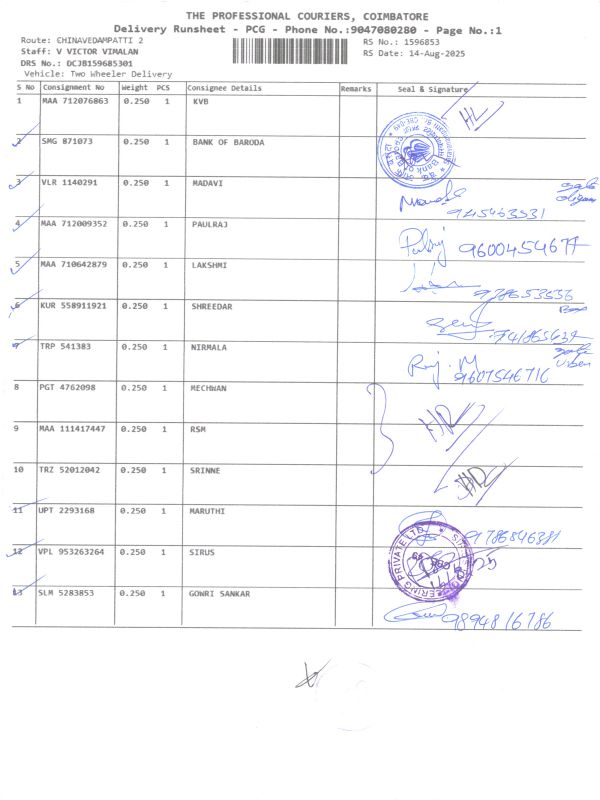 THE PROFESSIONAL COURIERS, COIMBATORE
Delivery Runsheet - PCG - Phone No.:9047080280 - Page No.:1
Route: CHINAVEDAMPATTI 2
RS No.: 1596853
Staff: V VICTOR VIMALAN
RS Date: 14-Aug-2025
DRS No.: DCJB159685301
Vehicle: Two Wheeler Delivery
S No Consignment No Weight PCS Consignee Details Remarks Seal & Signature
1 MAA 712076863 0.250 1 KVB
2 SMG 871073 0.250 1 BANK OF BARODA
3 VLR 1140291 0.250 1 MADAVI
945463531
4 MAA 712009352 0.250 1 PAULRAJ
9600454677
5 MAA 710642879 0.250 1 LAKSHMI
978653536
6 KUR 558911921 0.250 1 SHREEDAR
741865637
7 TRP 541383 0.250 1 NIRMALA
Raj. M
9607546716
8 PGT 4762098 0.250 1 MECHWAN
9 MAA 111417447 0.250 1 RSM
10 TRZ 52012042 0.250 1 SRINNE
11 UPT 2293168 0.250 1 MARUTHI
9786846381
12 VPL 953263264 0.250 1 SIRUS
13 SLM 5283853 0.250 1 GONRI SANKAR
9894816786